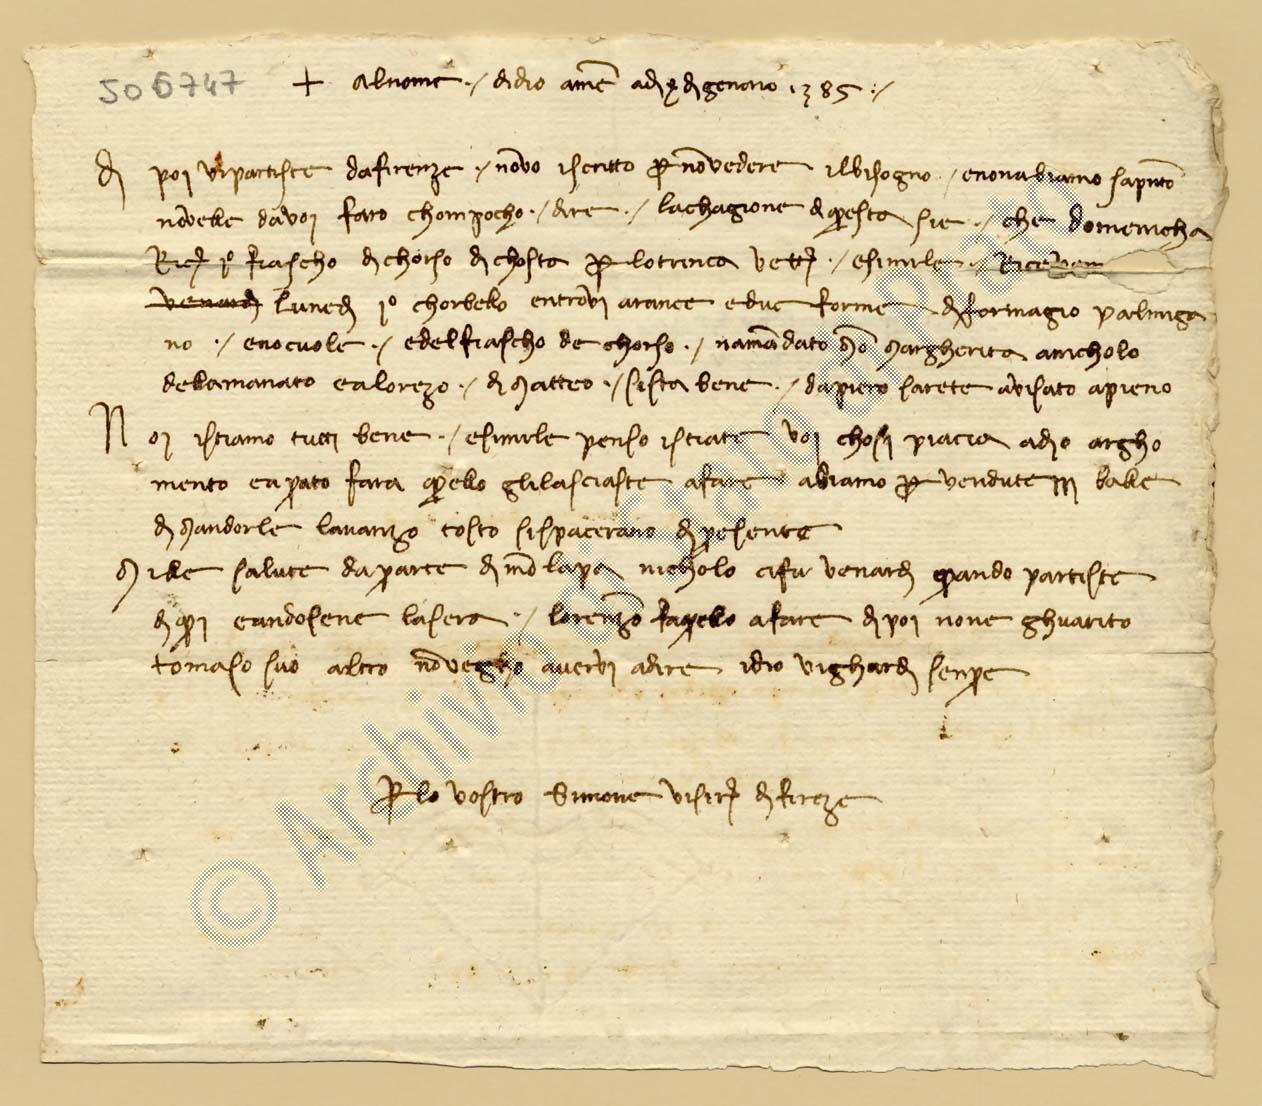 506747
+ al nome ·/ di dio ame adi di genaio 1385 ·/
di poi vi partiste da firenze ·/ no vo iscritto per no vedere il bisogno ·/ e non abiamo saputo
novelle da voi faro chom pocho ·/ dire ·/ la chagione di questa sie ·/ che domenicha
1º fiascho di chorso di chosta per lo trincha ·/ e simile ·/
venardi lunedi 1º chorbello entrovi arance e due forme di formagio parmiga
no ·/ e nocuole ·/ e del fiascho de chorso ·/ na mandato Mo Margherita a nicholo
dellamanato e a lorezo ·/ di Matteo ·/ si sta bene ·/ da piero sarete avisato apieno
Noi istiamo tutti bene ·/ e simile penso istiate voi chosi piacia a dio argho
mento en prato fara quello gli lasciaste a fare abiamo per vendute balle
di Mandorle l avanzo tosto si spacerano di presente
Mille salute da parte di mo lapa nicholo ci fu venardi quando partiste
di qui e andosene la sera ·/ lorenzo fa quello a fare di poi none ghuarito
tomaso suo altro no vegho avervi a dire idio vi ghardi senpre
per lo vostro Simone di fireze
© Archivio di Stato di Prato